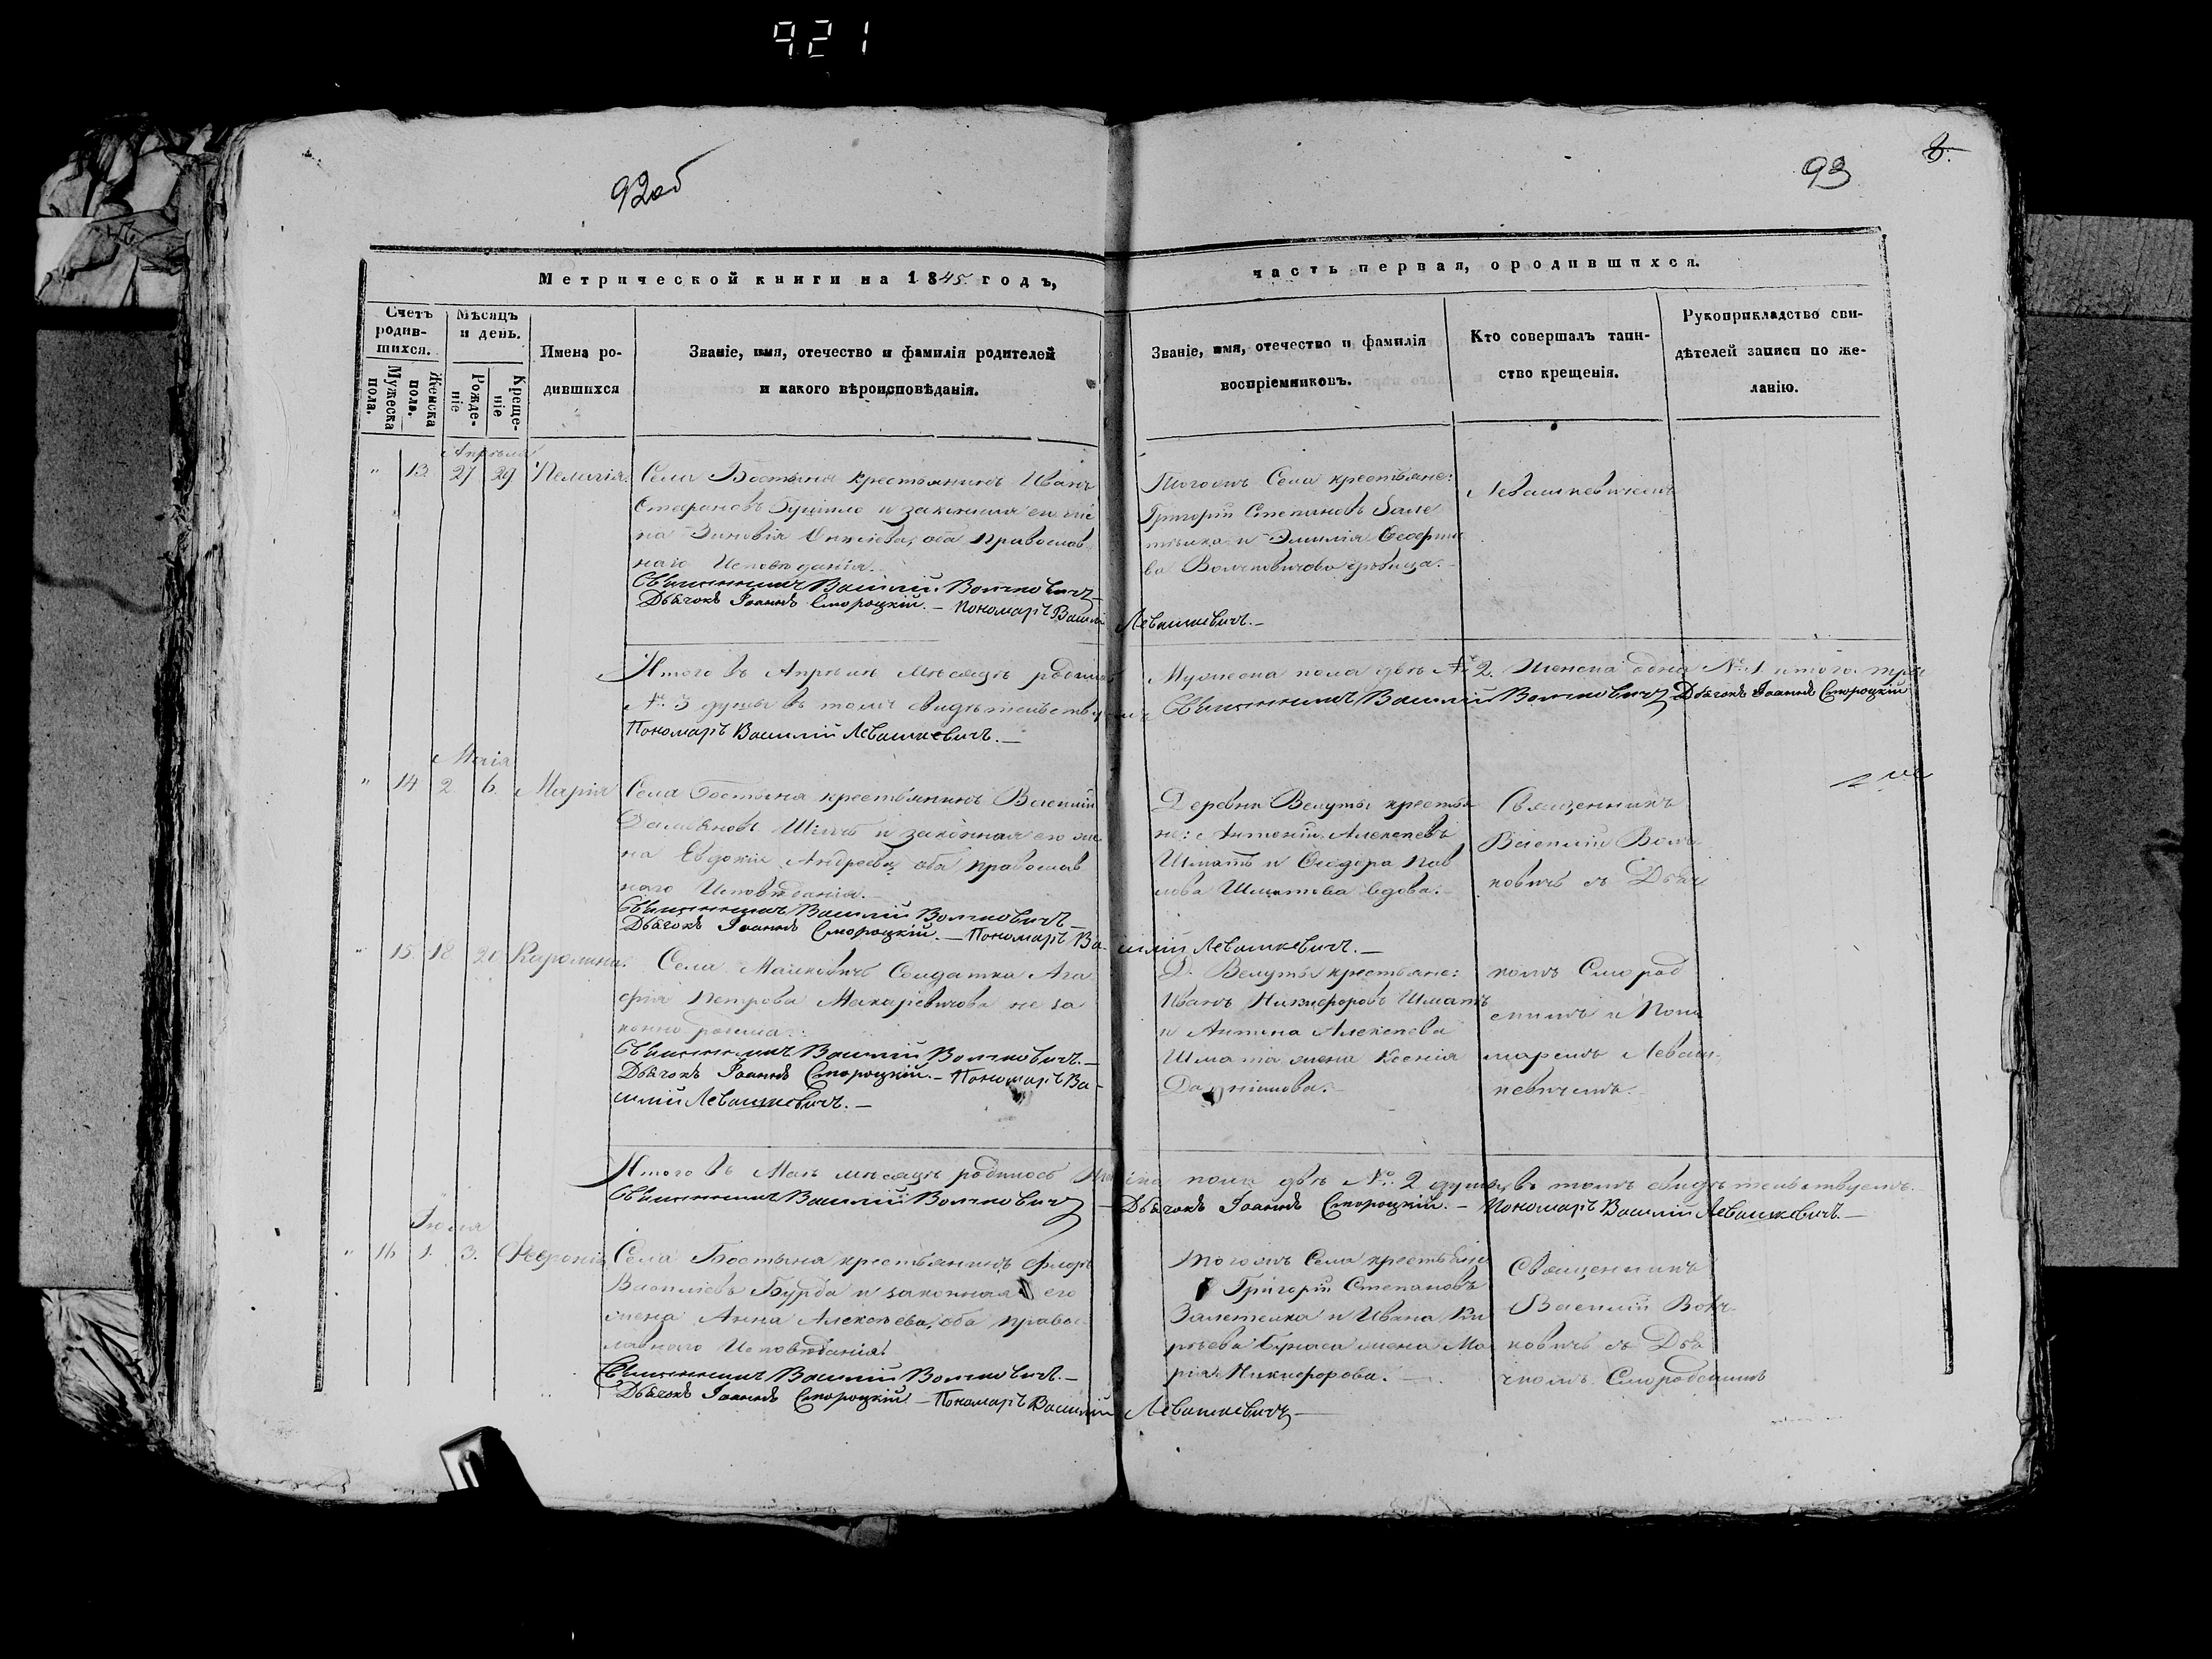 921
92об
93
8.
Метрической книги на 1845 годъ,
часть первая, ородившихся.
Счетъ родив-
шихся.
Мужеска пола.
Женска пола.
Мѣсяцъ и день.
Рожде-
ніе
Креще-
ніе
Имена ро-
дившихся
Званіе, имя, отечество и фамилія родителей
и какого вѣроисповѣданія.
Званіе, имя, отечество и фамилія
воспріемниковъ.
Кто совершалъ таин-
ство крещенія.
Рукоприкладство сви-
дѣтелей записи по же-
ланію.
Апрѣля
" 13. 27 29 Пелагія.
Села Бостыня крестьянинъ Иванъ
Стефановъ и законная его же
на Зиновія оба Православ
наго Исповѣданія.
Священникъ Василій Волчковичъ
Дьячокъ Іоаннъ Смороцкій. – Пономарь Василій Левашкевичъ. –
Тогожъ Села крестьяне:
Григорій Степановъ Зале
тылка и Эмилія
ва Волчковичова дѣвица.
Левашкевичемъ
Итого въ Апрѣлѣ мѣсяцѣ родилось Мужеска пола двѣ № 2. Женска одна № 1 итого три
№ 3 душы въ томъ свидѣтельствуемъ Священникъ Василій Волчковичъ Дьячокъ Іоаннъ Смороцкій
Пономарь Василій Левашкевичъ. –
Маія
" 14 2. 6. Марія
Села Бостыня крестьянинъ Василій
Шматъ и законная его же
на Евдокія Андреева, оба православ
наго Исповѣданія. –
Священникъ Василій Волчковичъ –
Дьячокъ Іоаннъ Смороцкій. – Пономарь Ва-
силій Левашкевичъ. –
Деревни Велуты крестья
не: Антоній Алексеевъ
Шматъ и Ѳеодора Пав
лова Шматова вдова. –
Священникъ
Василій Волч
ковичъ съ Дьяч
" 15. 18 20 Каролина.
Села Малковичъ Солдатка Ага
фія Петрова Макаревичова не за
конно родила:
Священникъ Василій Волчковичъ. –
Дьячокъ Іоаннъ Смороцкій. – Пономарь Ва-
силій Левашкевичъ. –
Д. Велуты крестьяне:
Иванъ Никифоровъ Шматъ
и Антона Алексеева
Шмата жена Ксенія
Даніилова. –
комъ Смород
скимъ и Поно
маремъ Леваш
кевичемъ.
Итого въ Маѣ мѣсяцѣ родилось Женска пола двѣ № 2 душы въ томъ свидѣтельствуемъ.
Священникъ Василій Волчковичъ – Дьячокъ Іоаннъ Смороцкій. – Пономарь Василій Левашкевичъ. –
" 16 1. 3. Февронія
Села Бостыня крестьянинъ Флоръ
Васильевъ Бурда и законная его
жена Анна Алексѣева, оба правос
лавнаго Исповѣданія.
Священникъ Василій Волчковичъ. –
Дьячокъ Іоаннъ Смороцкій – Пономарь Василій Левашкевичъ –
Тогожъ Села крестьяне
Григорій Степановъ
Залетылка и Ивана
жена Ма
рія Никифорова.
Священникъ
Василій Волч
ковичъ съ Дья
чкомъ Смородскимъ